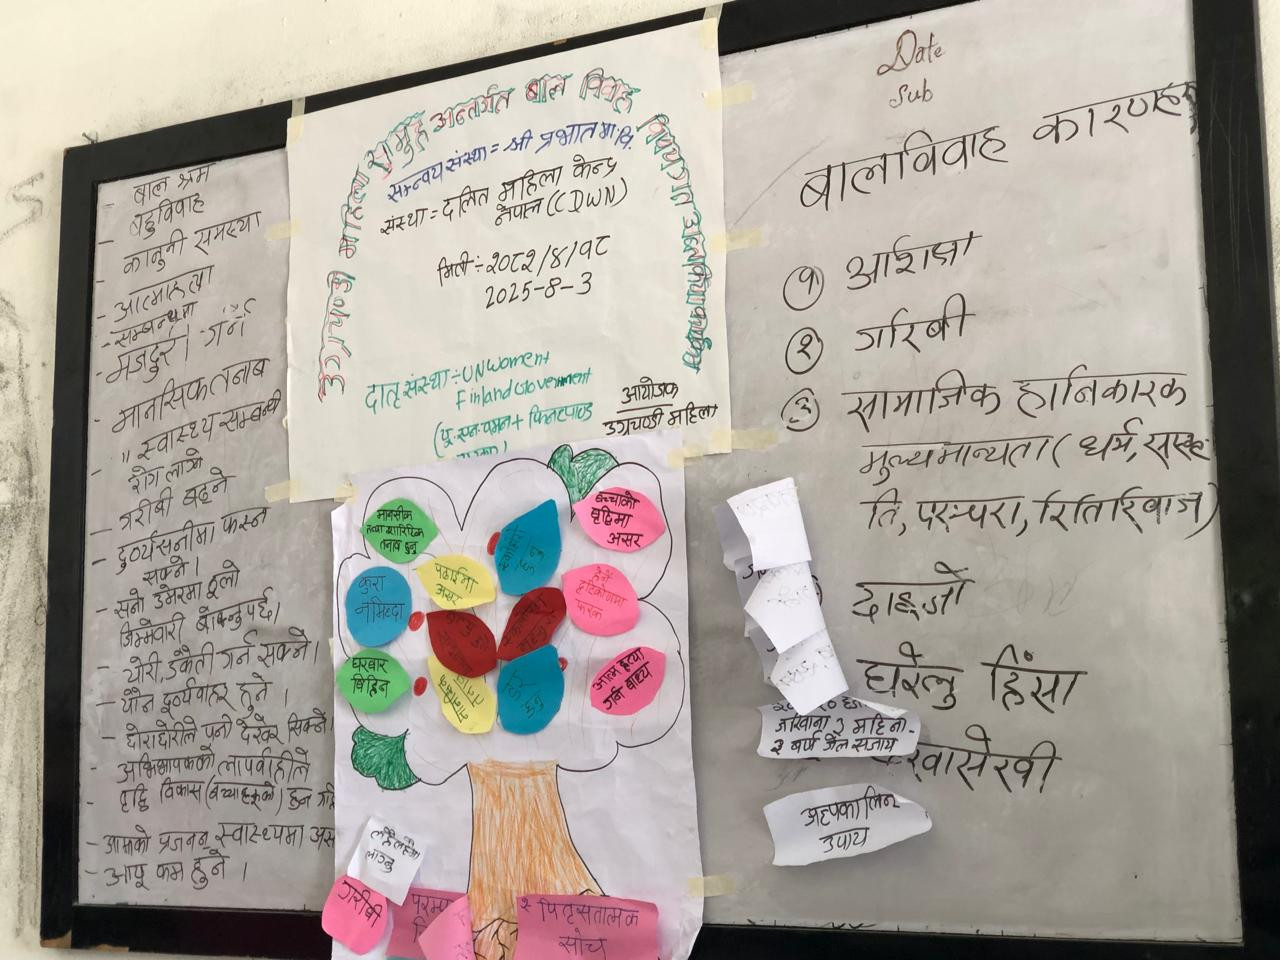 - बाल श्रम
बहुविवाह
- कानुनी समस्या
- आत्माहत्या
- सम्बन्धमा
- मजदुरी गर्न
- मानसिक तनाब
" स्वास्थ्य सम्बन्धी
- रोग लाग्ने
- गरीबी बढ्ने
- दुर्व्यसनीमा फस्न
सक्ने।
- सनो उमेरमा ठूलो
जिम्मेवारी बोक्नुपर्छ।
- चोरी, डकैती गर्न सक्ने।
- यौन दुर्व्यवाहर हुने ।
- छोराछोरीले पनी देखेर सिक्ने।
- अभिभावकको लापर्वाहीले
- वृद्धि विकास (बच्चाहरूको) हुन
- आमाको प्रजनन् स्वास्थ्यमा अस
- आयू कम हुने ।
उग्रचण्डी महिला समुह अन्तर्गत बाल विवाह विषयगत
समन्वय संस्था = श्री प्रभात मा. वि.
संस्था = दलित महिला केन्द्र
नेपाल (CDWN)
मिती ÷ २०८२/४/१८
2025-8-3
दातृ संस्था ÷ UN Woment
Finland Government
(यू. एन. वुमन + फिनल्याण्ड
आयोजक
उग्रचण्डी महिला
मानसीक
तथा शारिरिक
तनाब हुनु
बच्चाको
वृद्दिमा
असर
कुरा
नमिल्दा
पढाईमा
असर
हेर्ने
दृष्टिकोणमा
फरक
घरबार
बिहिन
आत्म हत्या
गर्न बाध्य
हुनु
गरीबी
२ पितृसतात्मक
सोच
Date
Sub
बालविवाह कारणहरू
१ अशिक्षा
२ गरिबी
३ सामाजिक हानिकारक
मुल्यमान्यता ( धर्म, संस्कृ
ति, परम्परा, रितिरिवाज)
दाइजो
घरेलु हिंसा
जरिवाना ३ महिना-
३ बर्ष जेल सजाय
अल्पकालिन
उपाय